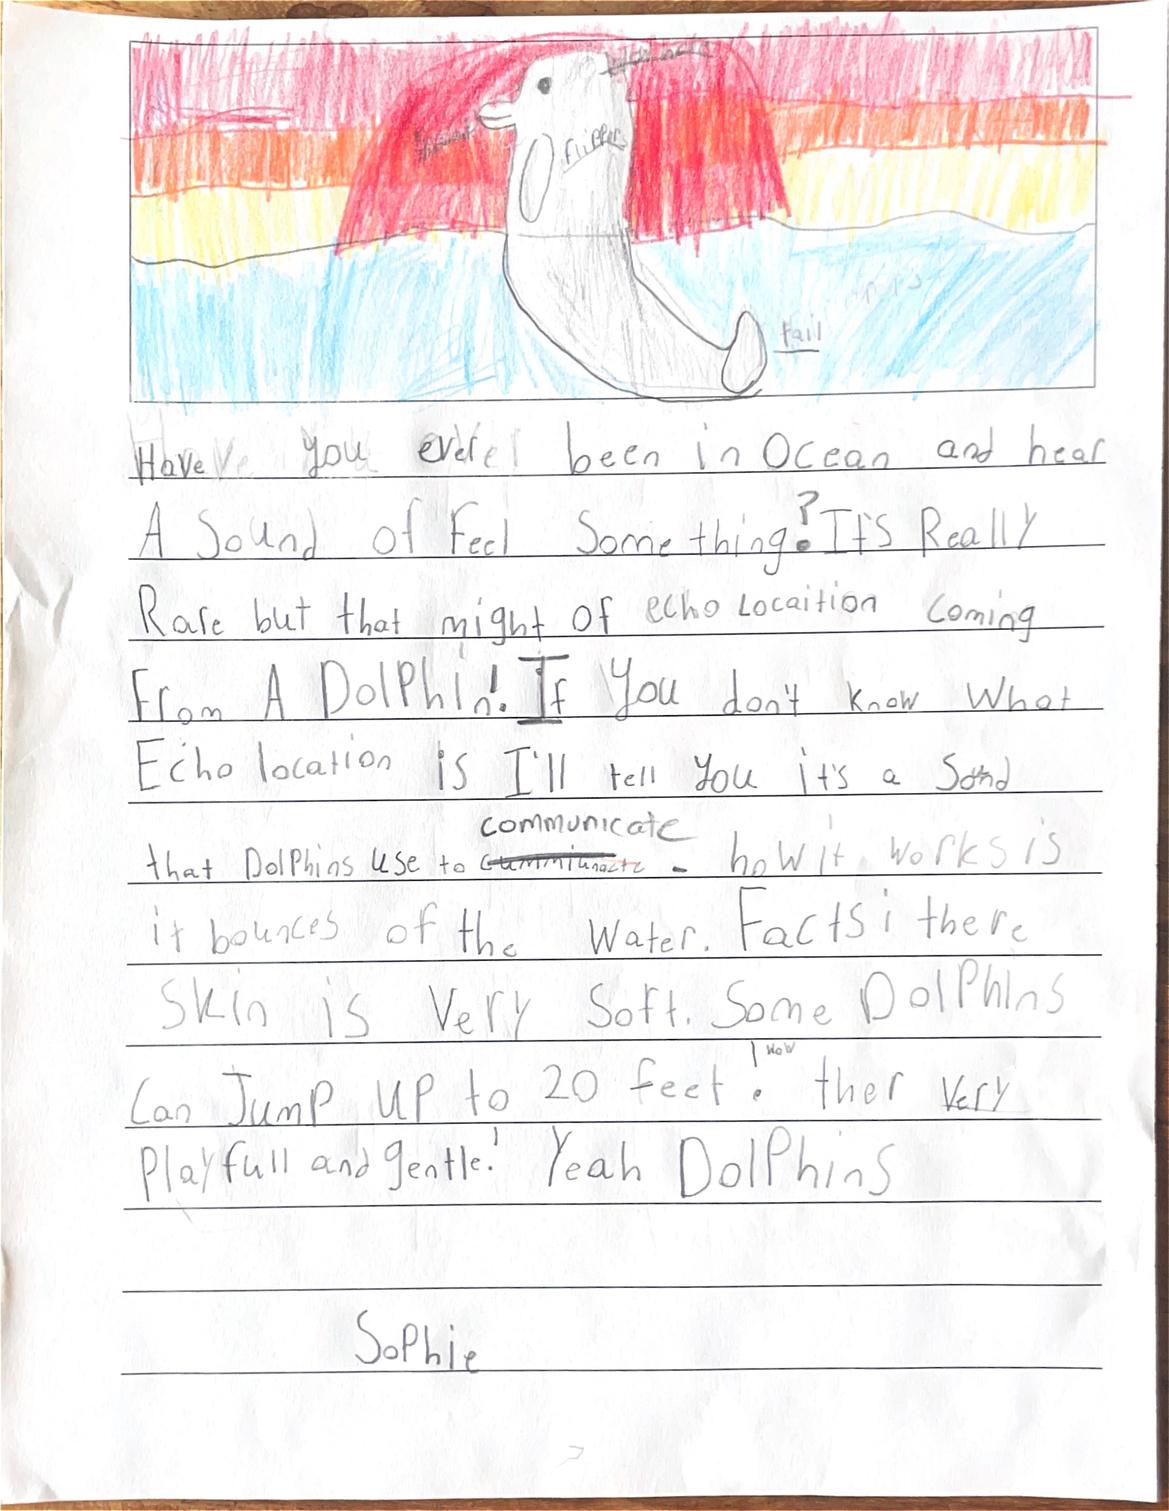 flipper
tail
Have you ever been in Ocean and hear
A Sound of Feel Something? It's Really
Rare but that might of echo Locaition coming
From A DolPhin! If You don't know What
Echo location is I'll tell you it's a Sond
communicate
that DolPhins use to - how it works is
it bounces of the Water. Facts: there
Skin is Very Soft. Some DolPhins
Can Jump UP to 20 feet! wow ther Very
Playfull and gentle! Yeah DolPhins
SoPhie